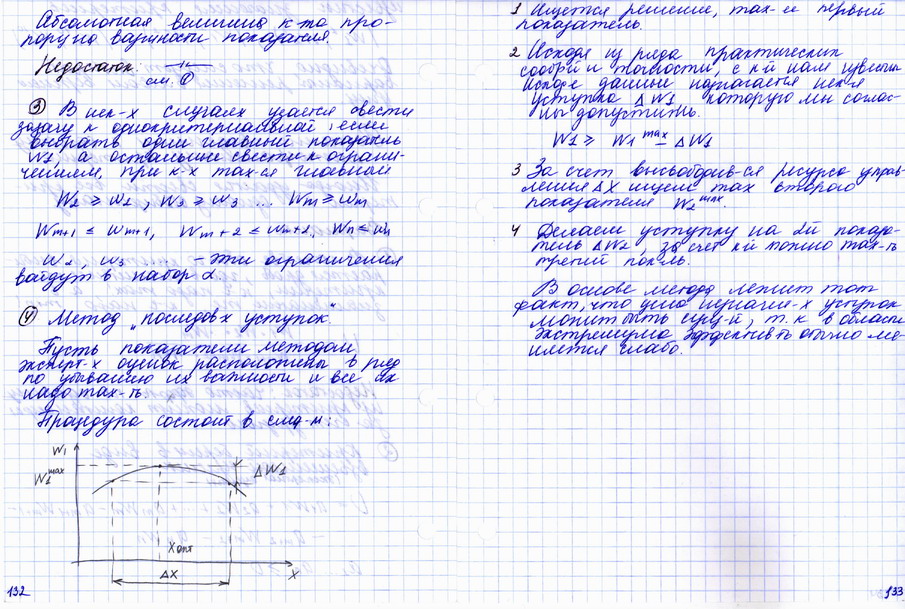 Абсолютная величина к-та про-
порц-на важности показателя.
Недостаток: —//—
см. ①
③ В нек-х случаях удается свести
задачу к однокритериальной, если
выбрать один главный показатель
W1, а остальные свести к ограни-
чениям, при к-х max-ся главный
W2 ≥ ω2, W3 ≥ ω3 ... Wm ≥ ωm
Wm+1 ≤ ωm+1, Wm+2 ≤ ωm+2, Wn ≤ ωn
ω2, ω3 ... – эти ограничения
войдут в набор α.
④ Метод "последов-х уступок".
Пусть показатели методом
эксперт-х оценок расположены в ряд
по убыванию их важности и все их
надо max-ть
Процедура состоит в след-м:
W1
W1 max
ΔW1
Xопт
ΔX
X
132
1 Ищется решение, max-ее первый
показатель.
2 Исходя из ряда практических
сообр и точности, с к-й нам известны
исход данные, назначается нек-я
уступка ΔW1, которую мы соглас-
ны допустить.
W1 ≥ W1 max – ΔW1
3 За счет высвободив-ся ресурса управ-
ления ΔX ищем max второго
показателя W2 max.
4 Делаем уступку на 2й показа-
тель ΔW2, за счет к-й можно max-ть
третий пок-ль.
В основе метода лежит тот
факт, что цена первонач-х уступок
может быть
т.к в области
экстремума эффективть обычно ме-
няется слабо.
133